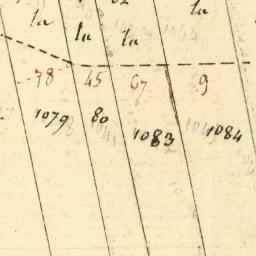 la la la la
78 45 67 9
1079 80 1083 1084